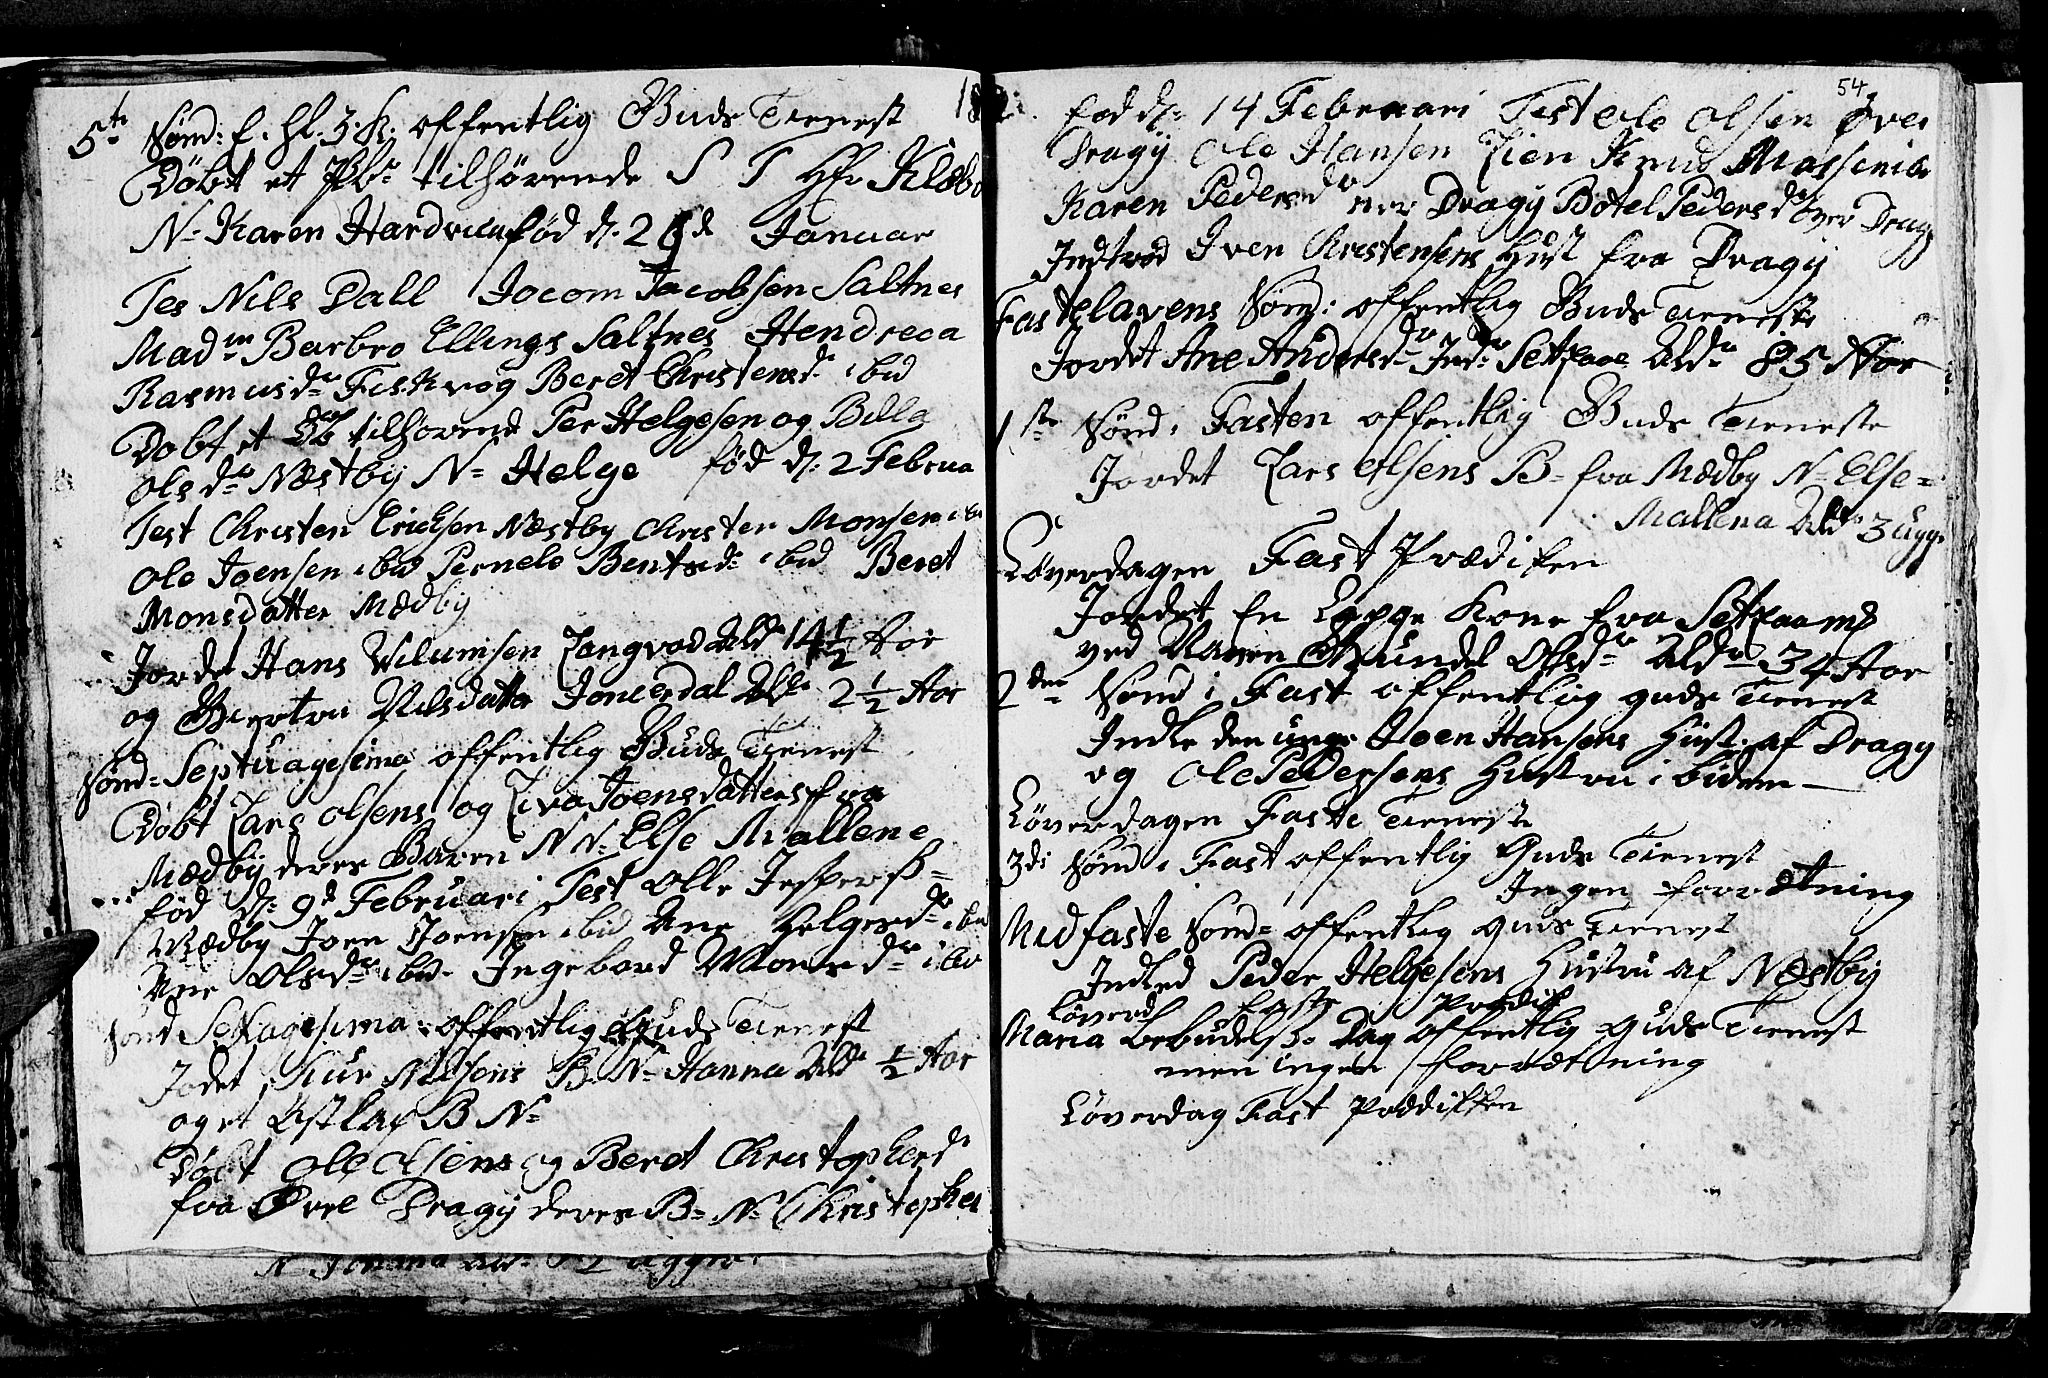 5te Sønd: E. hl. 3. K. offentlig Guds Tienest 18
Døbt et Pb: tilhørende S T Hr Klæbo
N: Karen Hardvica fød d: 29de Januar
Tes Nils Dall Jocom Jacobsen Saltnes
Madm: Barbro Ellings Saltnes Hendreca
Rasmusdr Fiskvog Beret Christensdr ibid
Døbt et tilhørend Per Helgesen og
Olsdr Næstby N: Helge fød d: 2 Februa
Test Christen Ericksen Næstby Christen Monsen ibi
Ole Joensen ibid Pernele Bentsdr ibid Beret
Monsdatter Mædby
Jordet Hans Vilumsen Langvad Aldr 14 1/2 Aar
og Nilsdatter Aldr 2 1/2 Aar
Sønd: Septuagesima offentlig Guds Tienest
Døbt Lars Olsens og Joensdatters fra
Mædby deres Baren N N: Else Mallene
fød d: 9d Februari Test Olle Jespers:
Mædby Joen Joensen ibid Ane Helgesdr ibid
Ane Olsdr ibid Ingebord Monsdr ibid
Sønd Sexagesima offentlig Guds Tienest
Jodet Nilsens B: N: Hanna Aldr 1/2 Aar
og et B N:
Døbt Ole Olsens og Beret Christopherd
fra Øvre Dragy deres B: N: Christopher
N Aldr: uger
54
fød d: 14 Februari Test Ole Olsen Øver
Dragy Ole Hansen
Karen Pedersdr Dragy Botel Pedersdr over Dragy
Indtrod Iven Christensens Hust fra Dragy
Fastelavens Sønd: offentlig Guds Tieneste
Jordet Ane Andersdr Inds: Setraae Aldr 85 Aar
1ste Sønd i Fasten offentlig Guds Tieneste
Jordet Lars Olsens B: fra Mædby N: Else:
Mallena Aldr 3 uger
Løverdagen Fast Prædiken
Jordet En Kone fra
ved Navn Gundel Olsdr Aldr 34 Aar
2den Sønd i Fast offentlig guds Tienest
Indle den unge Joen Hansens Hust: af Dragy
og Ole Pedersens Hustru ibidem
Løverdagen Faste Tieneste
3di Sønd i Fast offentlig Guds Tienest
Ingen forrætning
Midfaste Sønd: offentlig guds Tienest
Indled Peder Helgesens Hustru af Næstby
Løverd Faste Prædik
Maria bebudels: Dag offentlig Guds Tienest
men ingen forrætning
Løverdag Fast Prædikken